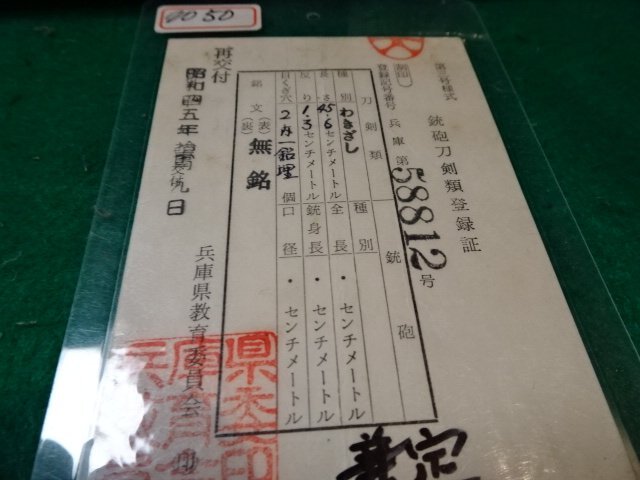 4050
第三号様式
銃砲刀剣類登録証
登録記号番号 兵庫 第58812号
刀剣類 銃砲
種別 わきざし 種別
長さ 45.6センチメートル 全長 ・ センチメートル
反り 1.3センチメートル 銃身長 ・ センチメートル
目くぎ穴 2内一鉛埋 個 口径 ・ センチメートル
銘文 (表)(裏) 無銘
再交付
昭和四五年 日
兵庫県教育委員会 印